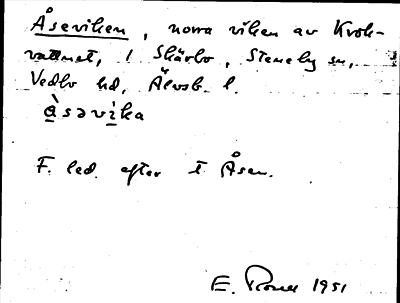 Åseviken, norra viken av Krok-
vattnet, i Skärbo, Steneby sn,
Vedbo hd, Älvsb. l.
å̀səvìka
F. led. efter t. Åsen.
E. 1951